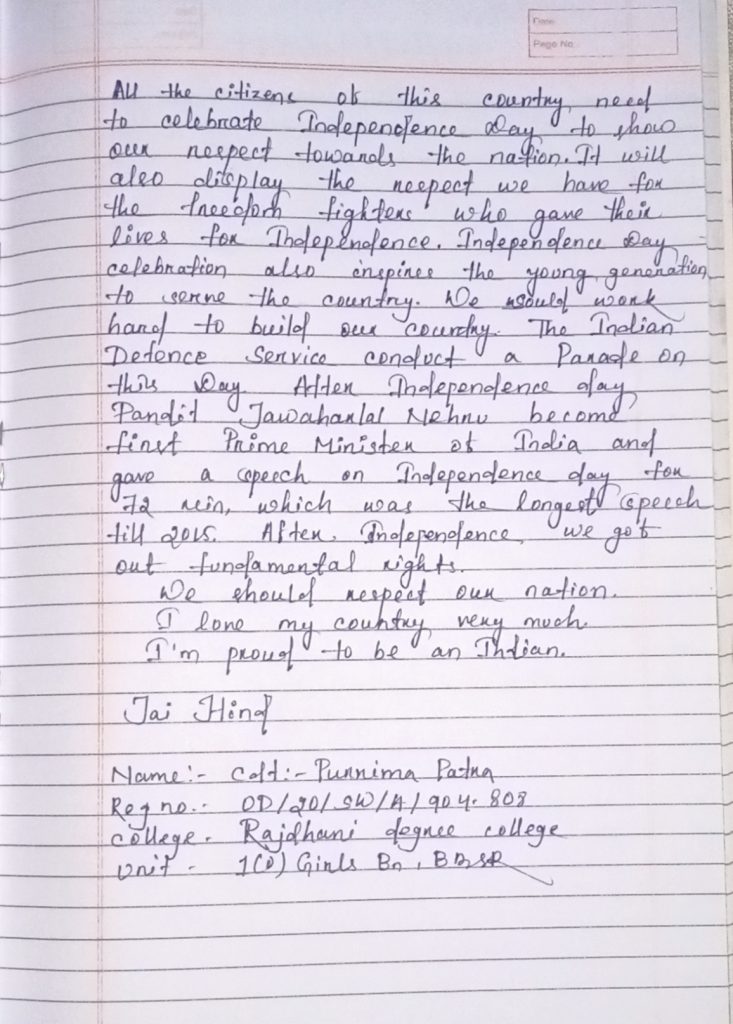 Date
Page No
All the citizens of this country need
to celebrate Independence Day to show
our respect towards the nation. It will
also display the respect we have for
the freedom fighters who gave their
lives for Independence. Independence Day
celebration also inspires the young generation
to serve the country. We should work
hard to build our country. The Indian
Defence Service conduct a Parade on
this Day After Independence day
Pandit Jawaharlal Nehru become
first Prime Minister of India and
gave a speech on Independence day for
72 min, which was the longest speech
till 2015. After Independence, we got
out fundamental rights.
We should respect our nation.
I love my country very much.
I'm proud to be an Indian.
Jai Hind
Name:- Cdt:- Purnima Patra
Reg no.- OD/20/SW/A/904808
College - Rajdhani degree college
Unit - 1(O) Girls Bn, BBSR